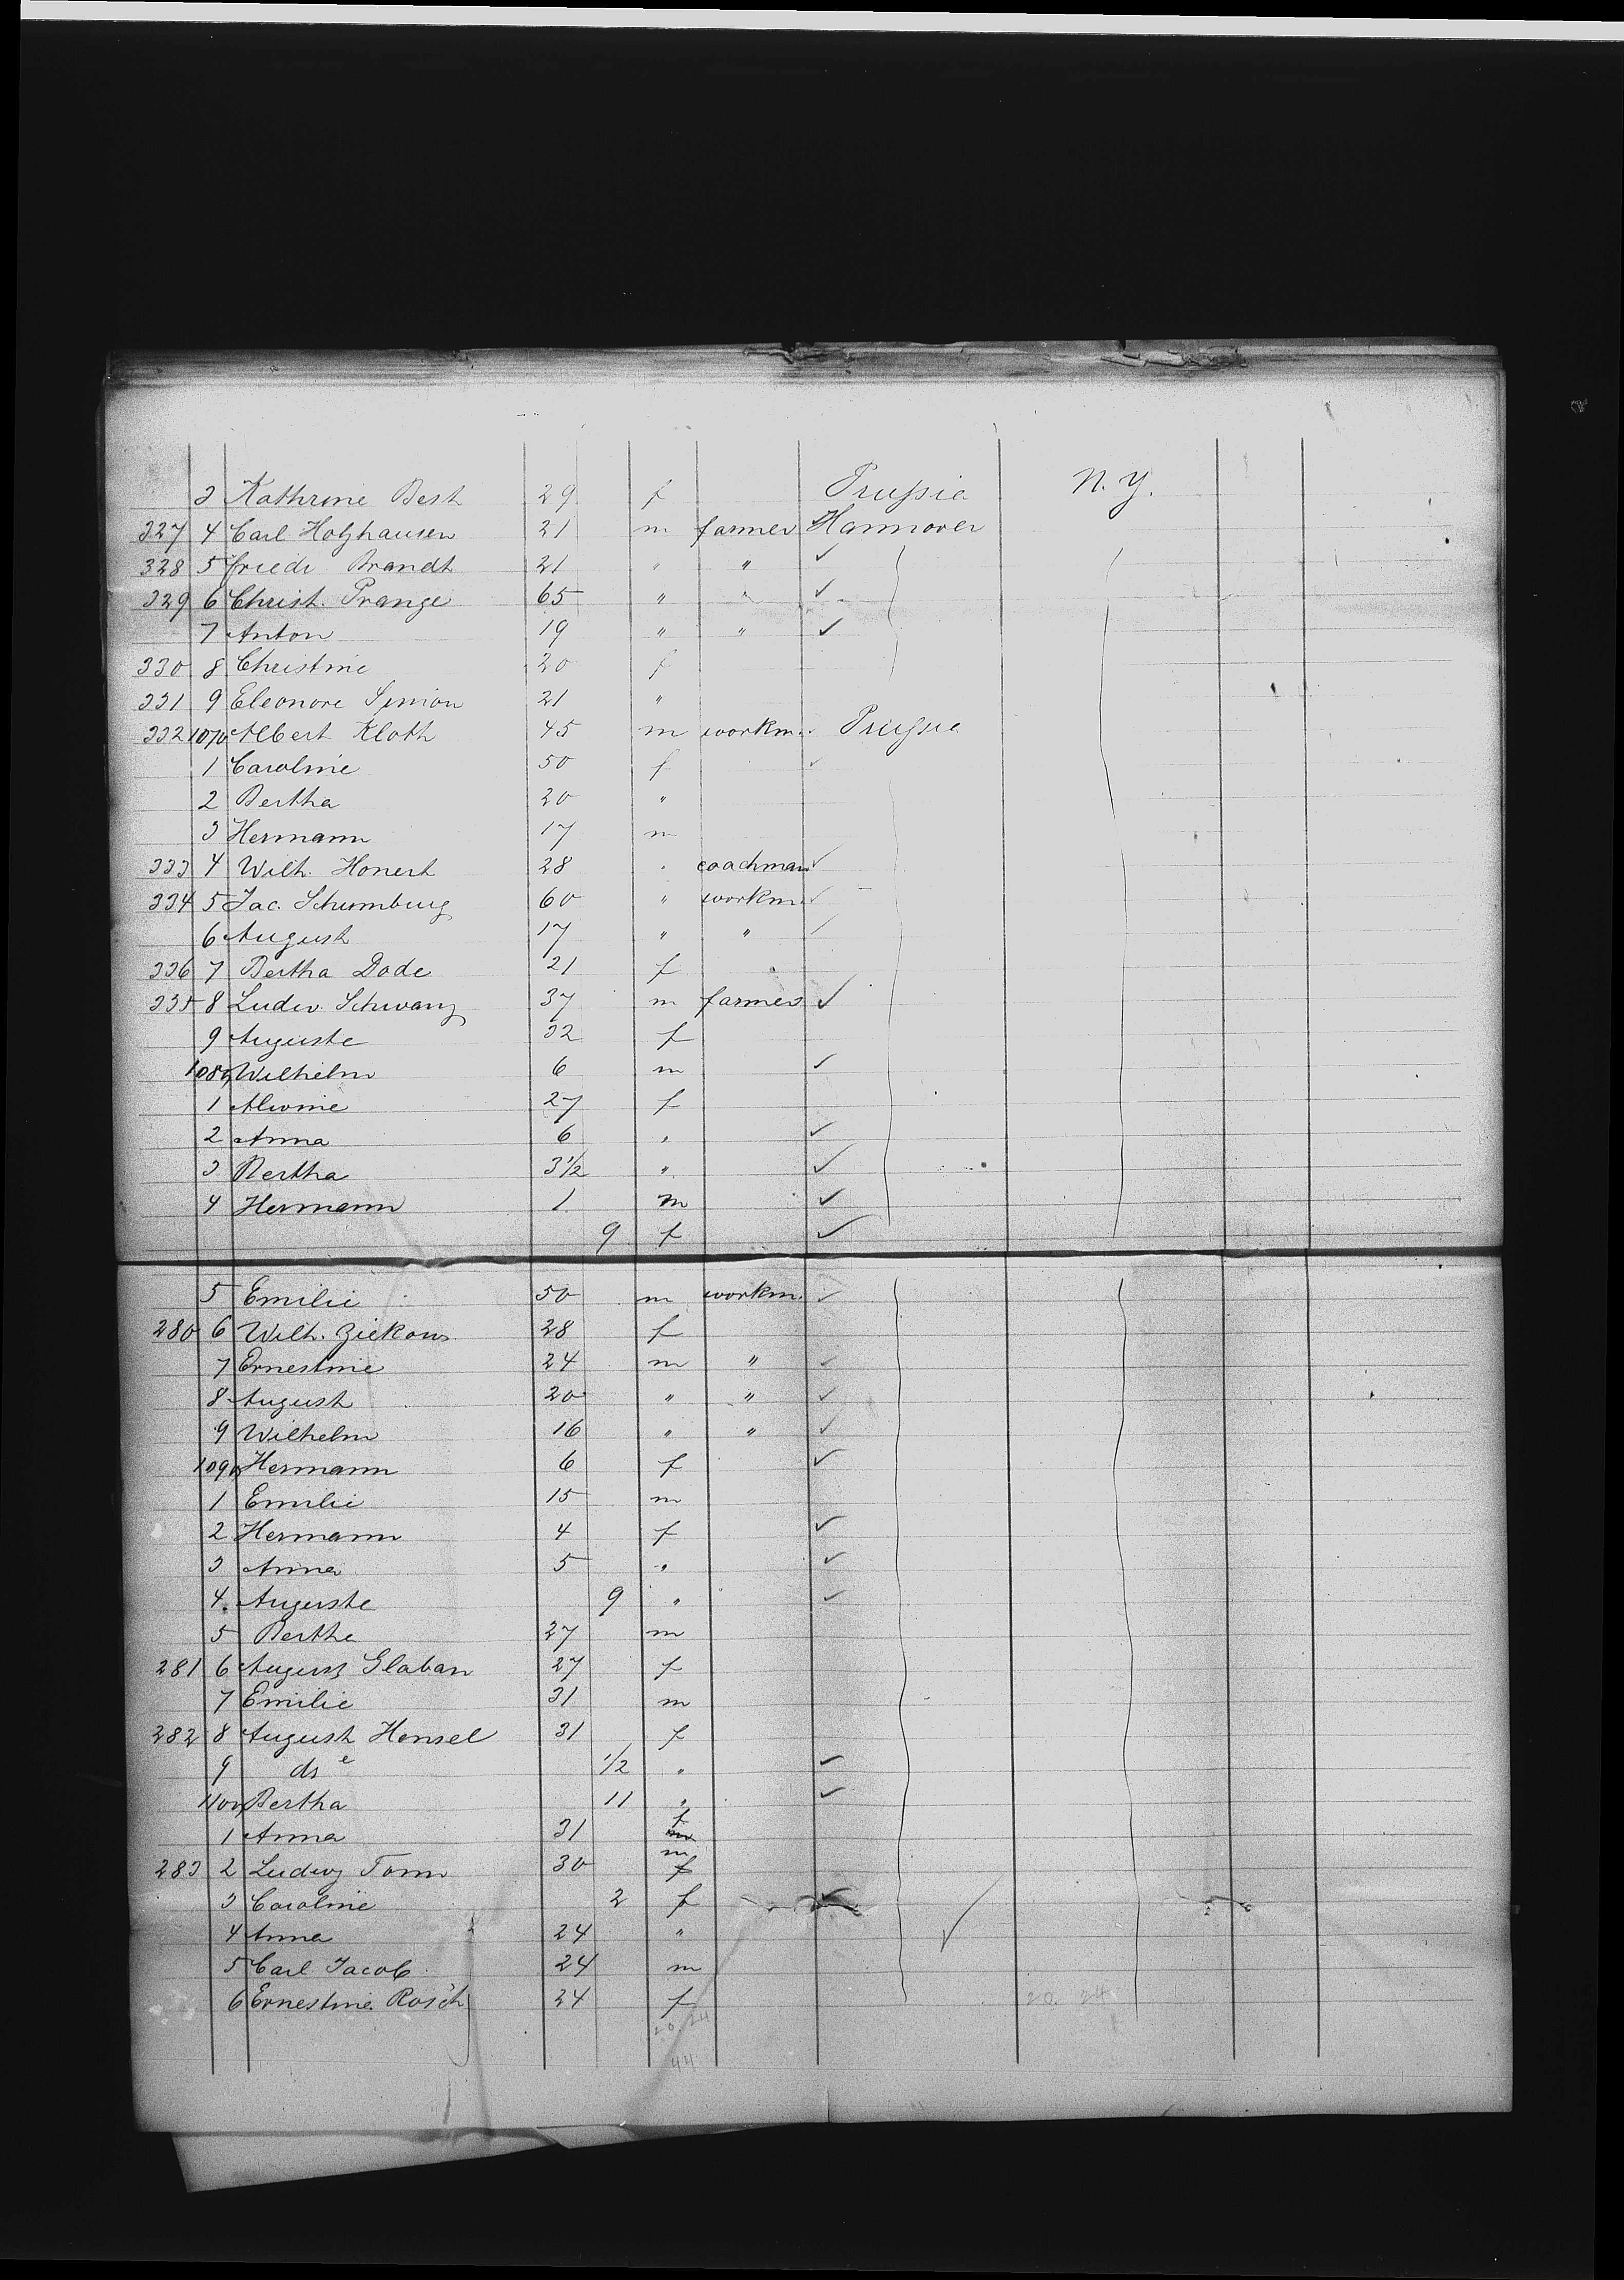 3 Kathrine Best 29 f Prussia N.Y.
327 4 Carl Holzhausen 21 m farmer Hannover
328 5 Friedr Brandt 21 " " ✓
329 6 Christ. Prange 65 " " ✓
7 Anton 19 " " ✓
330 8 Christine 20 f
331 9 Eleonore Simion 21 "
332 1070 Albert Kloth 45 m workm. Prussia
1 Caroline 50 f ✓
2 Bertha 20 "
3 Hermann 17 m
333 4 Wilh. Honert 28 " coachman ✓
334 5 Jac. Schumburg 60 " workm. ✓
6 August 17 " " ✓
336 7 Bertha Dode 21 f
335 8 Ludw. Schwanz 37 m farmer ✓
9 Auguste 32 f
1080 Wilhelm 6 m ✓
1 Alwine 27 f
2 Anna 6 " ✓
3 Bertha 3½ " ✓
4 Hermann 1 m ✓
9 f ✓
5 Emilie 50 m workm. ✓
280 6 Wilh. Ziekow 28 f
7 Ernestine 24 m " ✓
8 August 20 " " ✓
9 Wilhelm 16 " " ✓
1090 Hermann 6 f ✓
1 Emilie 15 m
2 Hermann 4 f ✓
3 Anna 5 " ✓
4 Auguste 9 " ✓
5 Berthe 27 m
281 6 August Glaban 27 f
7 Emilie 31 m
282 8 August Hensel 31 f
9 ds e ½ " ✓
1100 Bertha 11 " ✓
1 Anna 31 f m
283 2 Ludwig Tomm 30 m f
3 Caroline 2 f ✓
4 Anna 24 " ✓
5 Carl Jacob 24 m
6 Ernestine Rosch 24 f 20. 24
20 24
44